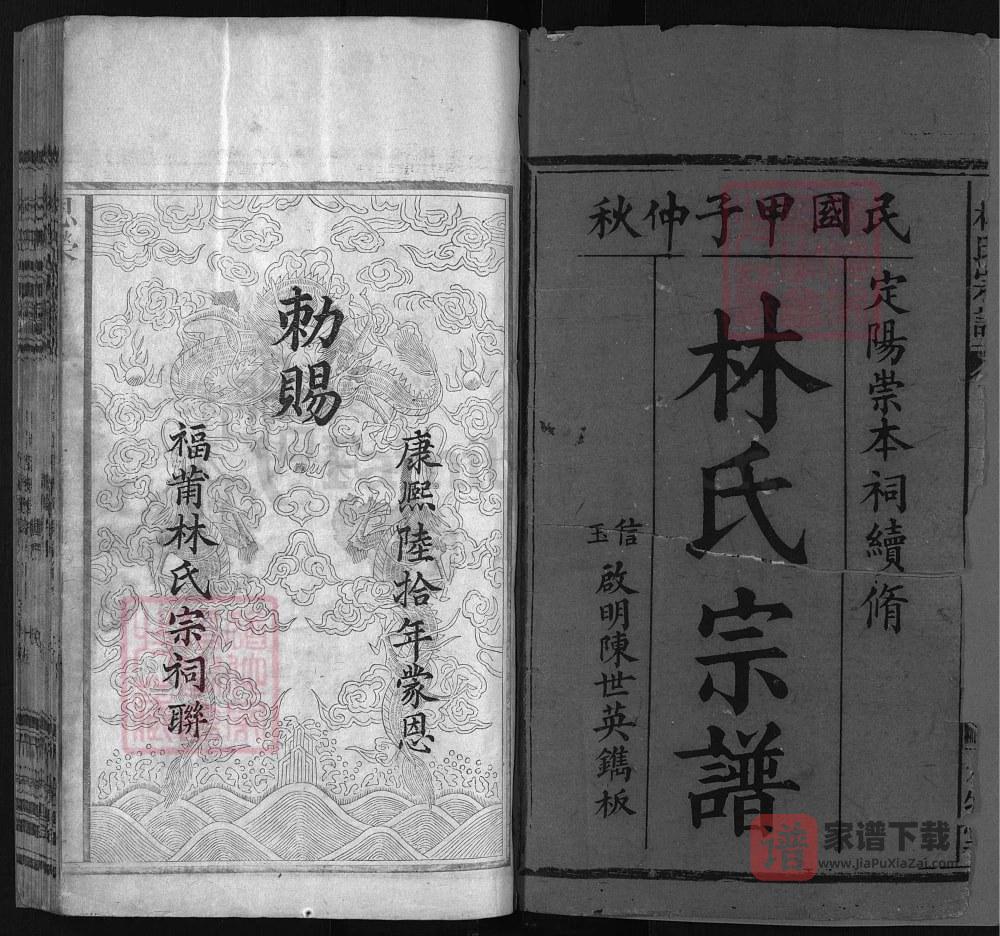 民國甲子仲秋
定陽崇本祠續脩
林氏宗譜
信玉
啟明陳世英鐫板
林氏宗譜
勅賜
康熙陸拾年蒙恩
福莆林氏宗祠聯
恩榮
家谱下载
www.JiaPuXiaZai.com
谱